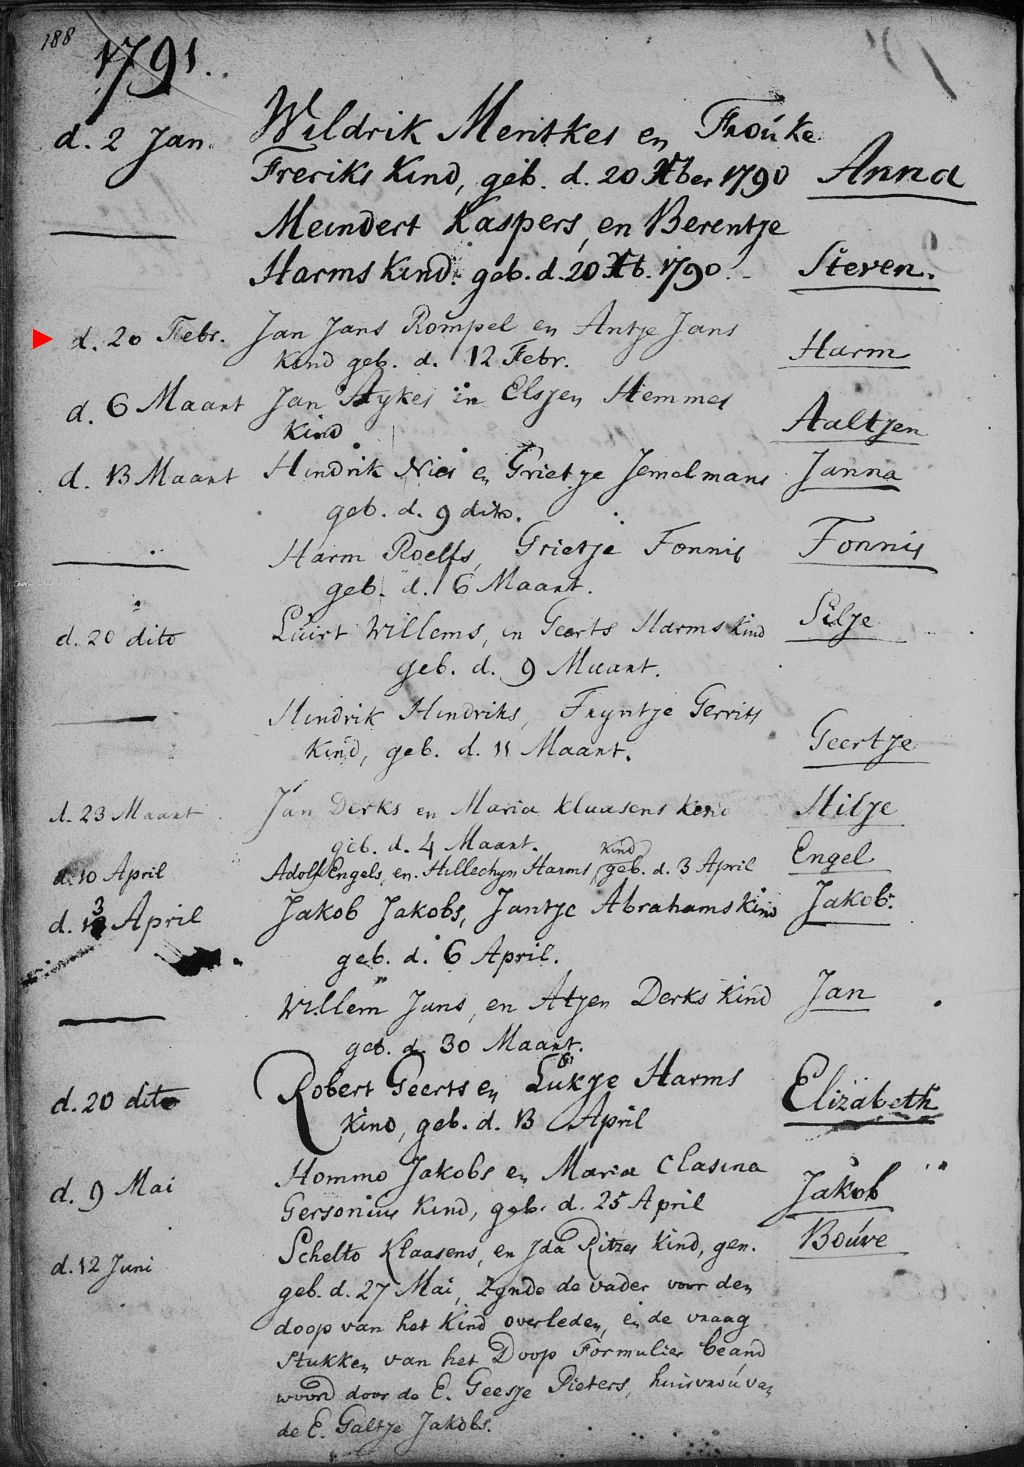 188
1791.
d. 2 Jan. Wildrik Mentkes en Frouke
Freriks Kind, geb. d. 20 Xber 1790 Anna
Meindert Kaspers, en Berentje
Harms Kind. geb. d. 20 Xb. 1790. Steven.
d. 20 Febr. Jan Jans Rompel en Antje Jans
Kind geb. d. 12 Febr. Harm
d. 6 Maart Jan Aykes en Elsjen Hemmes
Kind Aaltjen
d. 13 Maart Hindrik Nies en Grietje Jemelmans Janna
geb. d. 9 dito.
Harm Roelfs, Grietje Fonnis Fonnis
geb. d. 6 Maart.
d. 20 dito Luirt Willems, en Geerts Harms Kind Silje
geb. d. 9 Maart.
Hindrik Hindriks, Tryntje Gerrits
Kind, geb. d. 11 Maart. Geertje
d. 23 Maart Jan Derks en Maria Klaasens Kend Hilje
geb. d. 4 Maart.
d. 10 April Adolf Engels, en Hillechyn Harms Kind geb. d. 3 April Engel
d. 13 April Jakob Jakobs, Jantje Abrahams Kind Jakob.
geb. d. 6 April.
Willem Jans, en Atjen Derks Kind Jan
geb. d. 30 Maart.
d. 20 dito Robert Geerts en Lukje Harms Elizabeth
Kind, geb. d. 13 April
d. 9 Mai Hommo Jakobs en Maria Clasina
Gersonius Kind, geb. d. 25 April Jakob
d. 12 Juni Schelto Klaasens, en Jda Ritzes Kind, gen. Bouve
geb. d. 27 Mai, zynde de vader voor den
doop van het Kind overleden, en de vraag
stukken van het Doop Formulier beand
woord door de E. Geesje Pieters, huisvrou van
de E. Galtje Jakobs.